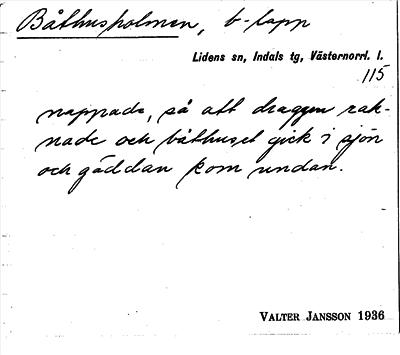 Båthusholmen, b-lapp
Lidens sn, Indals tg, Västernorrl. l.
115
nappade, så att draggen rak-
nade och båthuset gick i sjön
och gäddan kom undan.
VALTER JANSSON 1936